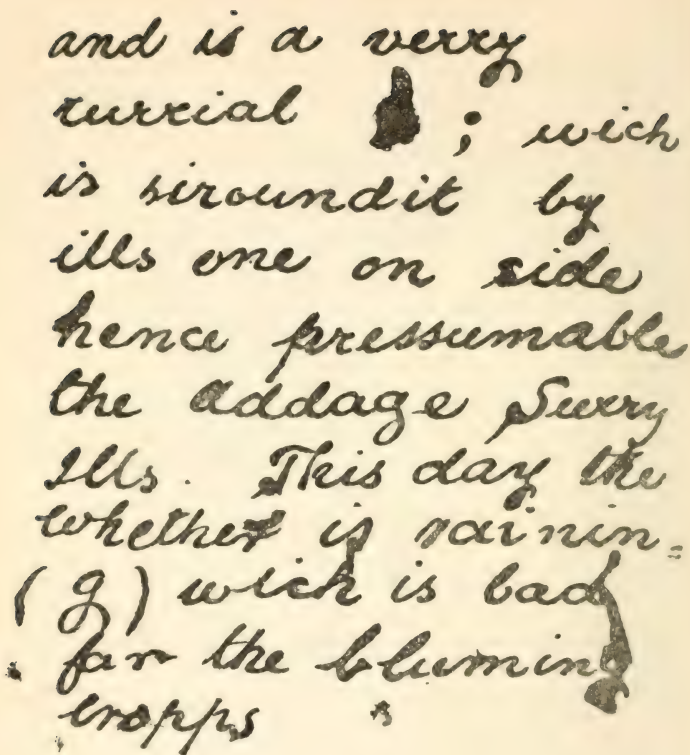 and is a verry
rurrial ; wich
is siroundit by
ills one on side
hence pressumable
the addage Surry
Ills. This day the
whether is rainin=
(g) wich is bad
for the blumin
cropps